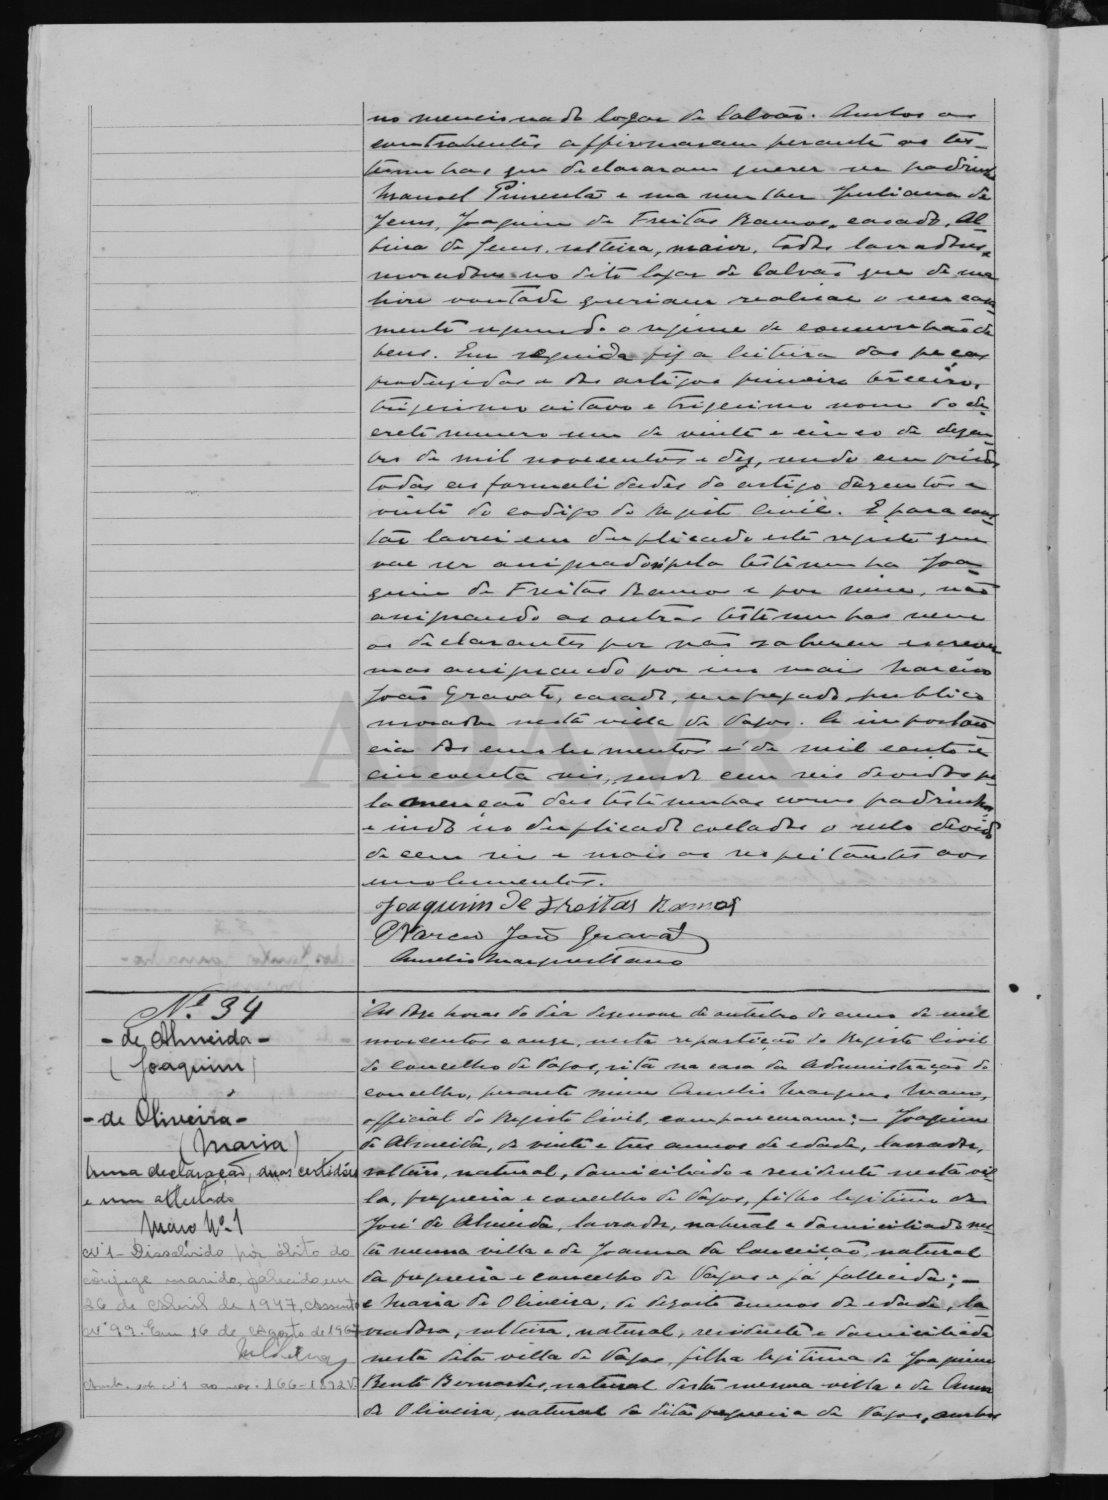 no mencionado logar de Calvão. Ambos os
contrahentes affirmaram perante as tes-
temunhas que declararam querer ser padrinhos
Manoel Pimenta e sua mulher Juliana de
Jesus, Joaquim de Freitas Ramos, casado, Al-
bina de Jesus, solteira, maior, todos lavradores,
moradores no dito logar de Calvão que de sua
livre vontade queriam realisar o seu casa-
mento segundo o regime de comunhão de
bens. Em seguida fiz a leitura das peças
produzidas e dos artigos primeiro terceiro,
trigesimo oitavo e trigesimo nono do de-
creto numero um de vinte e cinco de dezem-
bro de mil novecentos e dez, sendo cumpridas
todas as formalidades do artigo duzentos e
vinte do codigo do Registo Civil. E para cons-
tar lavrei em duplicado este registo que
vae ser assignado pela testemunha Joa-
quim de Freitas Ramos e por mim, não
assignando as outras testemunhas nem
os declarantes por não saberem escrever
mas assignando por eles mais Marcos
João Gravato, casado, empregado publico
morador nesta villa de Vagos. A importan-
cia dos emolumentos é de mil cento e
cincoenta reis, sendo cem reis devidos pe-
la menção das testemunhas como padrinhos
e indo no duplicado collados o selo devido
de cem reis e mais os respeitantes aos
emolumentos.
Joaquim de Freitas Ramos
Marcos João Gravato
Aurelio Marques Mano
Nº 34
- de Almeida -
(Joaquim)
- de Oliveira -
(Maria)
Uma declaração, duas certidões
e um attestado
Maço Nº 1
Nº 1 - Dissolvido por óbito do
cônjuge marido, falecido em
26 de Abril de 1947, assento
Nº 99. Em 16 de Agosto de 196
166-1892
Ás doze horas do dia dezenove de outubro do anno de mil
novecentos e onze, nesta repartição do Registo Civil
do Concelho de Vagos, sita na casa da Administração do
concelho, perante mim Aurelio Marques Mano,
official do Registo Civil, compareceram: - Joaquim
de Almeida, de vinte e tres annos de edade, lavrador,
solteiro, natural, domiciliado e residente nesta vil-
la, freguesia e concelho de Vagos, filho legitimo de
José de Almeida, lavrador, natural e domiciliado nes-
ta mesma villa e de Joanna da Conceição, natural
da freguesia e concelho de Vagos e já fallecida; -
e Maria de Oliveira, de dezoito annos de edade, la-
vradora, solteira, natural, residente e domiciliada
nesta dita villa de Vagos, filha legitima de Joaquim
Bento Bernardes, natural desta mesma villa e de Anna
de Oliveira, natural da dita freguesia de Vagos, ambos
ADAVR